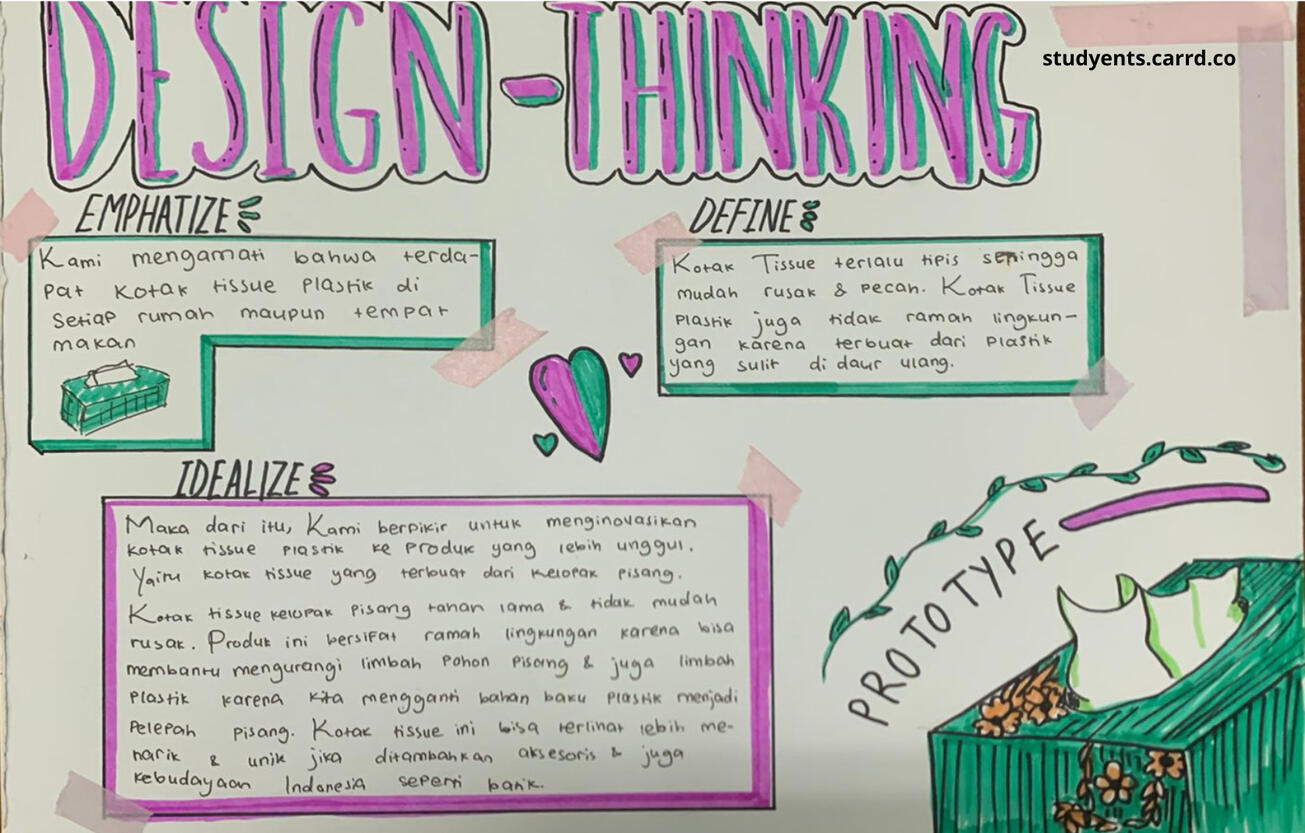 DESIGN-THINKING
studyents.carrd.co
EMPHATIZE
Kami mengamati bahwa terda-
pat kotak tissue plastik di
setiap rumah maupun tempat
makan
DEFINE
Kotak Tissue terlalu tipis sehingga
mudah rusak & pecah. Kotak Tissue
plastik juga tidak ramah lingkun-
gan karena terbuat dari plastik
yang sulit di daur ulang.
IDEALIZE
Maka dari itu, Kami berpikir untuk menginovasikan
kotak tissue plastik ke produk yang lebih unggul.
Yaitu kotak tissue yang terbuat dari kelopak pisang.
Kotak tissue kelopak pisang tahan lama & tidak mudah
rusak. Produk ini bersifat ramah lingkungan karena bisa
membantu mengurangi limbah pohon pisang & juga limbah
plastik karena kita mengganti bahan baku plastik menjadi
pelepah pisang. Kotak tissue ini bisa terlihat lebih me-
narik & unik jika ditambahkan aksesoris & juga
kebudayaan Indonesia seperti batik.
PROTOTYPE